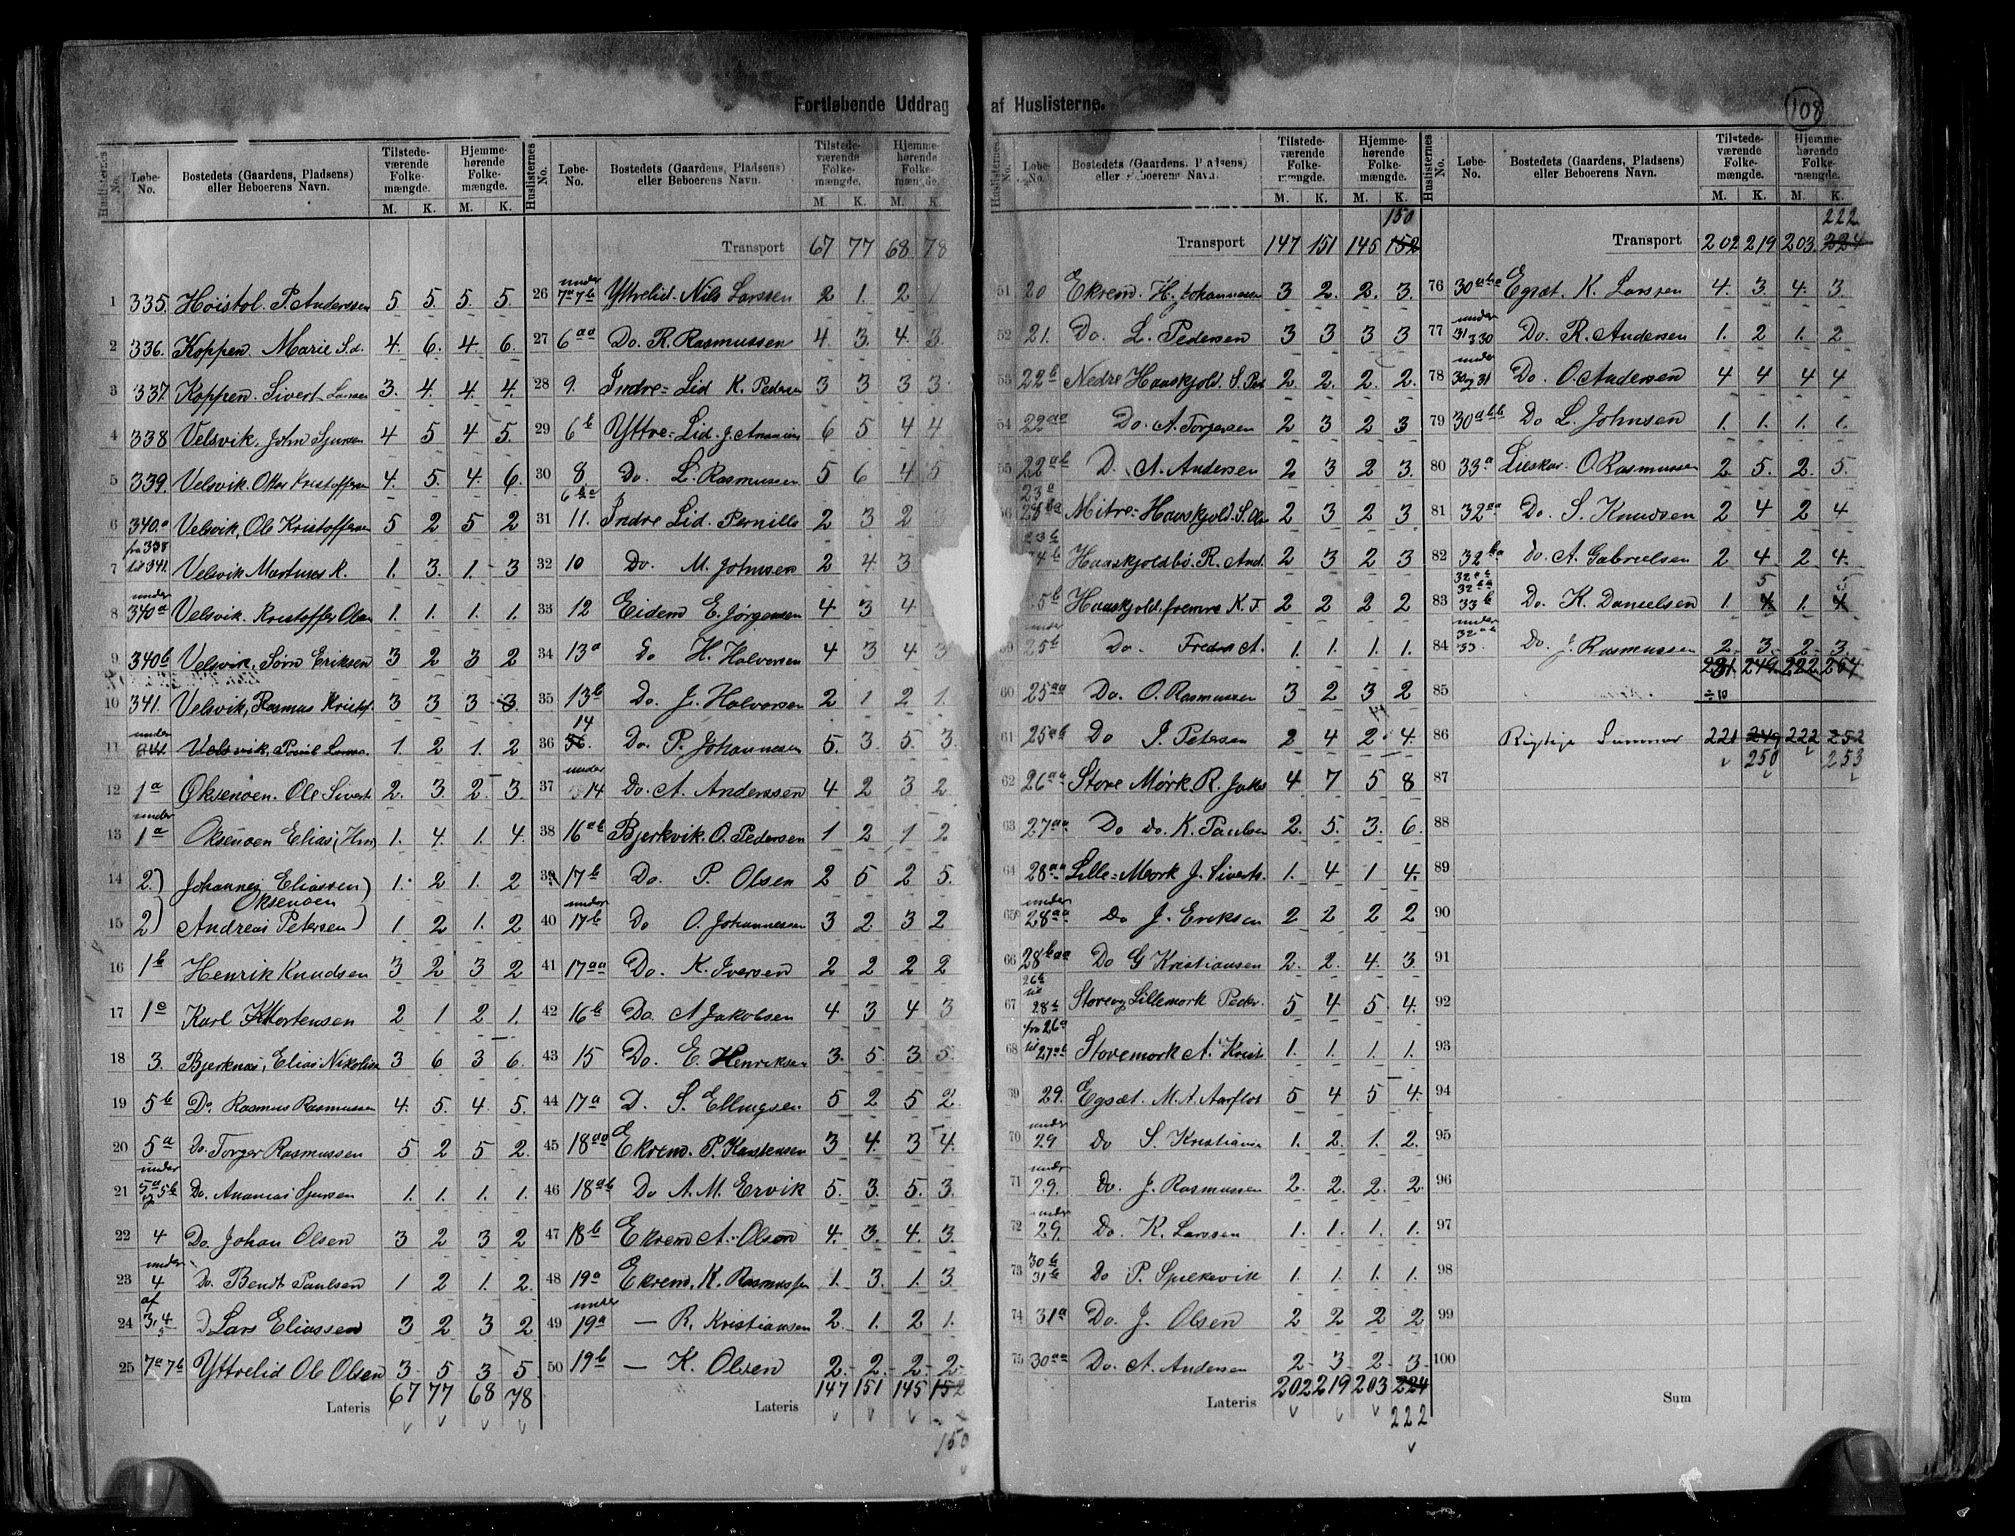 Fortløbende Uddrag af Huslisterne.
108
Huslisternes No. Løbe-No. Bostedets (Gaardens, Pladsens) eller Beboerens Navn. Tilstedeværende Folkemængde. M. K. Hjemmehørende Folkemængde. M. K.
1 335. Høistol. P. Anderssen 5 5. 5. 5.
2 336. Koppen. Marie S.d. 4. 6. 4 6.
3 337. Koppen. Sivert Larsen 3. 4. 4. 4.
4 338 Velsvik. John Sjursen 4 5 4 5.
5 339. Velsvik. Oktav Kristoffersen 4. 5. 4. 6
6 340.a Velsvik, Ole Kristoffersen 5 2 5 2
7 fra 338 til 341. Velsvik Martines K. 1. 3. 1. 3
8 under 340a Velsvik. Kristoffer Olsen 1. 1. 1. 1.
9 340b Velsvik, Sørn Eriksen 3 2 3 2
10 341. Velsvik, Rasmus Kristof. 3 3 3 3.
11 under 341. Velsvik, Poul Larsen. 1. 2 1. 2
12 1a Oksenøen. Ole Sivert 2. 3 2. 3.
13 under 1a Oksenøen Elias, Hnr 1. 4. 1. 4.
14 2.) Johannes Eliassen) 1. 2 1. 2
Oksenøen
15 2) Andreas Petersen) 1 2 1. 2
16 1b Henrik Knudsen 3 2 3 2
17 1c Karl K Mortensen 2 1 2 1.
18 3. Bjerknes, Elias Nikolisen 3 6 3 6.
19 5b Do Rasmus Rasmussen 4. 5. 4. 5.
20 5a Do. Torger Rasmussen 5 2 5 2.
21 under 5a og 5b Do. Ananias Sjursen 1. 1. 1. 1.
22 4 Do. Johan Olsen 3 2 3 2
23 under 4 Do. Bendt Paulsen 1 2 1. 2.
24 af 3, 4 D Lars Eliassen 3 2 3 2
25 7a 7b Yttrelid Ole Olsen 3. 5 3 5
Lateris 67 77 68 78
Huslisternes No. Løbe-No. Bostedets (Gaardens, Pladsens) eller Beboerens Navn. Tilstedeværende Folkemængde. M. K. Hjemmehørende Folkemængde. M. K.
Transport 67 77 68 78
26 under 7a 7b Yttrelid. Nils Larssen 2 1. 2
27 6aa Do. R. Rasmussen 4. 3. 4. 3.
28 9. Indre=Lid K. Pedersen 3 3 3 3.
29 6b Yttre=Lid. J. Ananias 6 5 4 4
30 8 Do. L. Rasmussen 5 6 4 5
31 6ba 11. Indre Lid. Pernille 2 3 2
32 10 Do. M. Johnsen 2 4 3
33 12 Eidem E. Jørgensen 4 3 4
34 13a Do H. Halvorsen 4 3 4 3
35 13b Do. J. Halvorsen 2 1 2 1.
36 14 Do. P. Johannesen 5. 3. 5 3.
37 under 14 Do. A. Anderssen 4 2 3 2
38 16ab Bjerkvik. O. Pedersen 1 2 1 2
39 17b Do. P. Olsen 2 5 2 5.
40 under 17b Do O. Johannessen 3 2 3 2
41 17aa Do. K. Iversen 2 2 2 2
42 16b Do. A Jakobsen 4 3 4 3
43 15 Do. E. Henriksen 3. 5. 3. 5.
44 17a D. S. Ellingsen 5 2 5 2.
45 18aa Ekrem. P. Karstensen 3 4. 3 4.
46 18ab Do A. M. Ervik 5. 3. 5. 3.
47 18b Ekrem A. Olsen 4. 3. 4. 3.
48 19a Ekrem, K. Rasmussen 1. 3. 1. 3
49 under 19a — R. Kristiansen 2. 1. 2 1.
50 19b — K. Olsen 2. 2. 2. 2.
Lateris 147 151 145 152
150
Huslisternes No. Løbe-No. Bostedets (Gaardens, Pladsens) eller Beboerens Navn. Tilstedeværende Folkemængde. M. K. Hjemmehørende Folkemængde. M. K.
150
Transport 147 151 145 152
51 20 Ekrem. H. Johannessen 3 2. 2. 3.
52 21. Do. L. Pedersen 3 3 3 3
53 22b Nedre Haaskjold. S. Ped 2. 2. 2. 2.
54 22aa Do. A. Torgersen 2 3 2 3
55 22ab D. A. Andersen 2 3 2 3.
56 23a Mitre=Haaskjold. S. Ols 2 3 2 3
23b 24b Haaskjoldbø. R. And. 2 3 2 3
5b Haaskjold fremre K. T. 2 2 2 2
59 under 25b Do. Fredrik A. 1. 1. 1. 1.
60 25aa Do. O. Rasmussen 3 2 3 2
61 25ab Do J. Petersen 2 4 2. 4.
62 26aa Store Mørk R. Jakob 4 7 5 8
63 27aa Do do. K. Paulsen 2. 5. 3. 6.
64 28aa Lille=Mørk J. Siverts. 1. 4 1 4.
65 under 28aa Do J. Eriksen 2 2 2 2
66 28baa Do G Kristiansen 2. 2. 4. 3.
67 26b til 28b Store og Lillemørk Peder. 5 4 5 4.
68 fra 26a til 27ab Storemørk A. Krist 1. 1. 1. 1.
69 29. Egsæt. M. A. Aarflot 5 4 5 4.
70 under 29 Do S. Kristiansen 1. 2. 1. 2.
71 under 29. Do. J. Rasmussen 2. 2. 2. 2.
72 under 29. Do. K. Larssen 1. 1. 1. 1.
73 30b 31b Do P. Spilkevik 1. 1. 1. 1.
74 31a Do. J. Olsen 2 2 2 2
75 30aa Do. A. Andersen 2. 3. 2. 3.
Lateris 202 219 203 224
222
Huslisternes No. Løbe-No. Bostedets (Gaardens, Pladsens) eller Beboerens Navn. Tilstedeværende Folkemængde. M. K. Hjemmehørende Folkemængde. M. K.
222
Transport 202 219 203 224
76 30aba Egsæt. K. Larssen 4. 3. 4. 3.
77 under 31 & 30 Do. R. Andersen 1. 2 1. 2
78 under 30 og 31 Do. O. Andersen 4 4 4 4
79 30abb Do L. Johnsen 1. 1. 1. 1.
80 33a Lieskar. O. Rasmussen 2. 5. 2. 5.
81 32aa Do. S. Knudsen 2 4 2 4
82 32ba Do. A. Gabrielsen 2 4. 2 4.
83 32ab 32bb 33b Do. K. Danielsen 1. 4 5 1. 4 5
84 under 32ab 33. Do. J. Rasmussen 2. 3. 2. 3.
231. 249. 222. 254
85 ÷10
86 Rigtige Summer 221 249 222 252
250 253
87
88
89
90
91
92
93
94
95
96
97
98
99
100
Sum